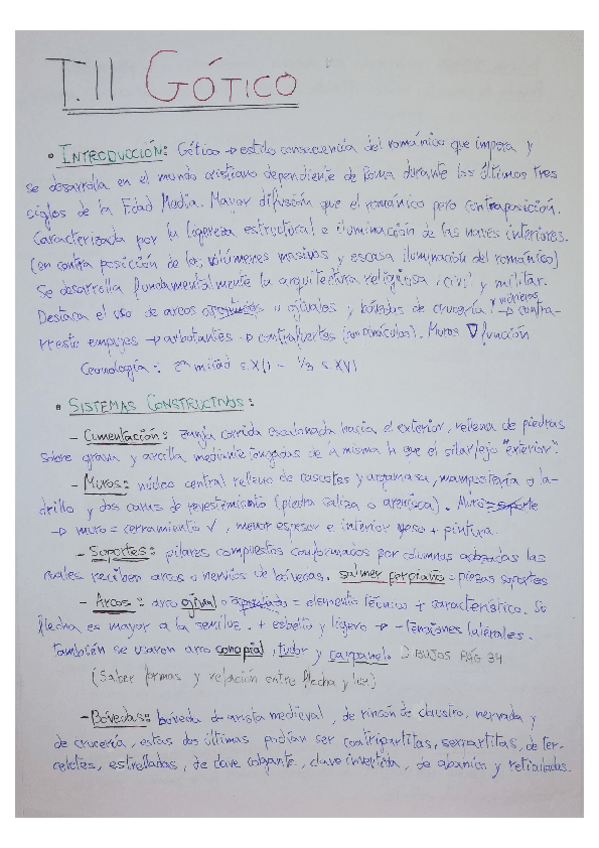 T.11 GÓTICO
• INTRODUCCIÓN: Gótico → estilo consecuencia del románico que impera y
se desarrolla en el mundo cristiano dependiente de Roma durante los últimos tres
siglos de la Edad Media. Mayor difusión que el románico pero contraposición.
Caracterizada por la ligereza estructural e iluminación de las naves interiores.
(en contra posición de los volúmenes masivos y escasa iluminación del románico)
Se desarrolla fundamentalmente la arquitectura religiosa, civil y militar.
Destaca el uso de arcos apuntados u ojivales y bóvedas de crucería y nervios → contra-
rresto empujes → arbotantes → contrafuertes (con pináculos). Muros ∇ función
Cronología: 2ª mitad s. XII - 1/3 s. XVI
• SISTEMAS CONSTRUCTIVOS:
- Cimentación: zanja corrida escalonada hacia el exterior, rellena de piedras
sobre grava y arcilla mediante tongadas de la misma h que el sillarejo "exterior".
- Muros: núcleo central relleno de cascotes y argamasa, mampostería o la-
drillo y dos caras de revestimiento (piedra caliza o arenisca). Muro = soporte
→ muro = cerramiento ✓, menor espesor e interior yeso + pintura.
- Soportes: pilares compuestos conformados por columnas adosadas las
cuales reciben arcos o nervios de bóvedas. salmer perpiaño = piezas soportes
- Arcos: arco ojival o apuntado = elemento técnico + característico. Su
flecha es mayor a la semiluz. + esbelto y ligero → - tensiones laterales.
también se usaron arco conopial, tudor y carpanel. DIBUJOS PÁG 34
(Saber formas y relación entre flecha y luz)
- Bóvedas: bóveda de arista medieval, de rincón de claustro, nervada y
de crucería, estas dos últimas podían ser cuatripartitas, sexpartitas, de ter-
celetes, estrelladas, de clave colgante, clave invertida, de abanico y reticuladas.